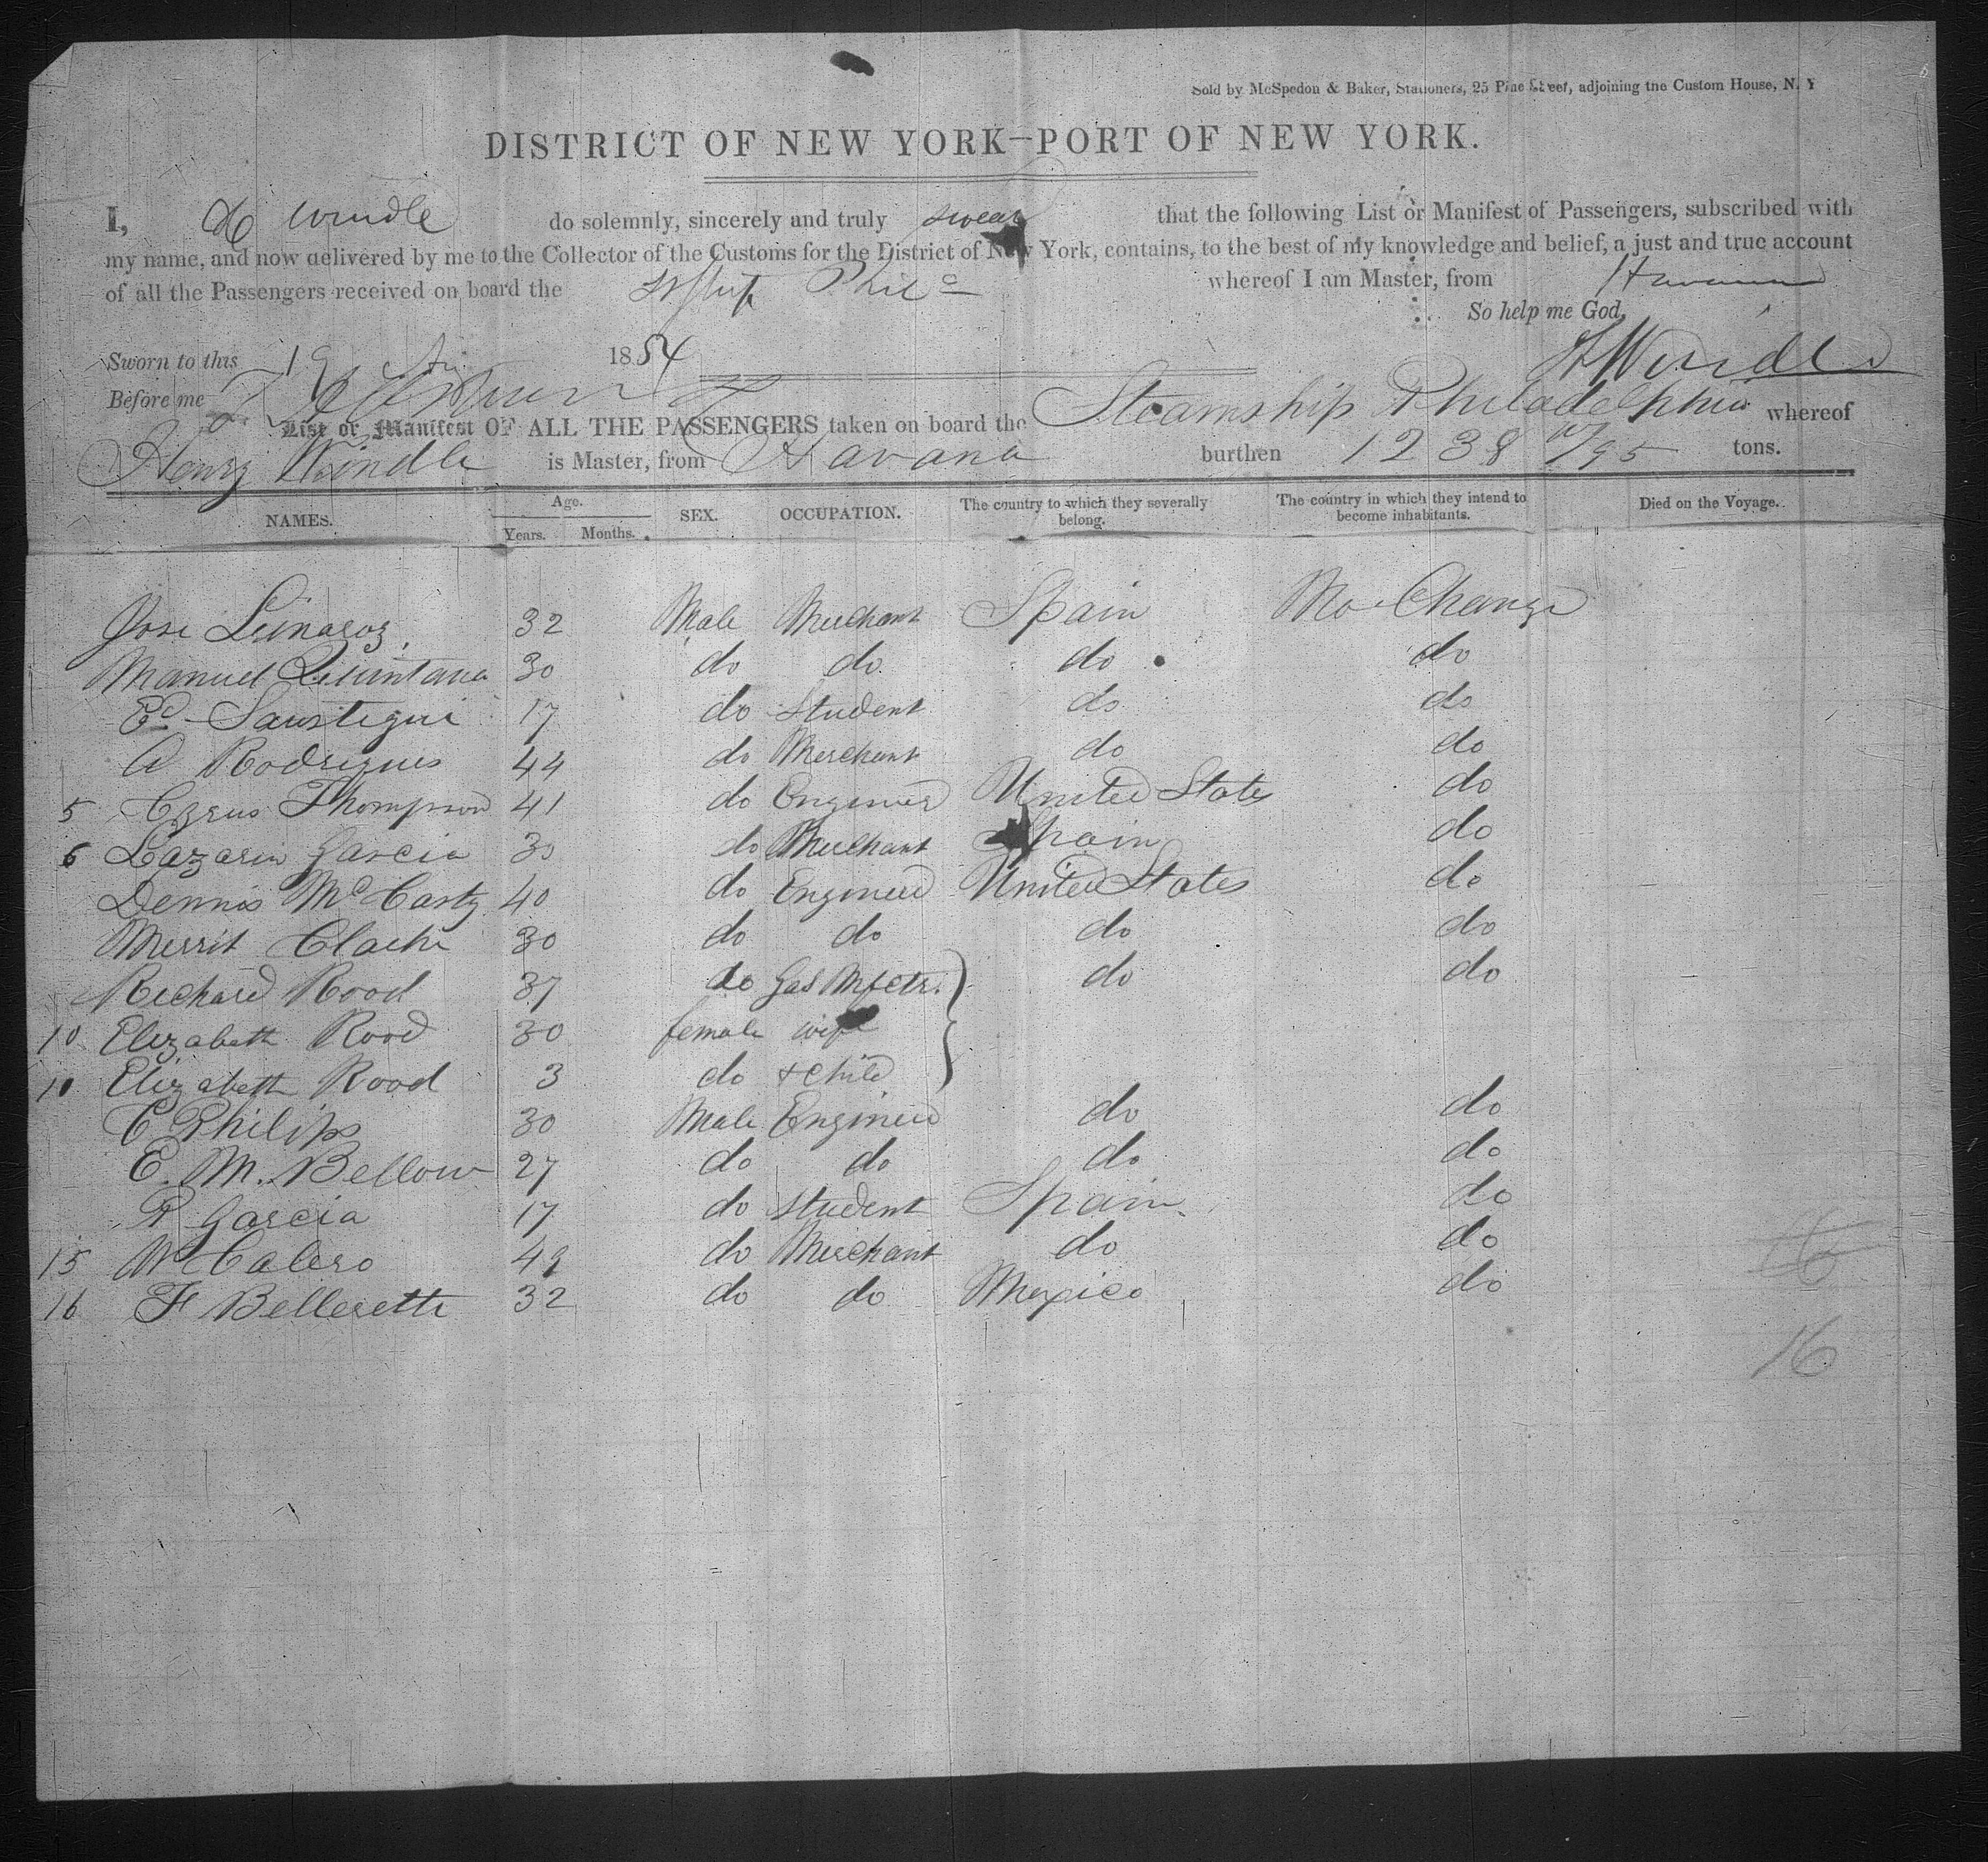 Sold by McSpedon & Baker, Stationers, 25 Pine Street, adjoining the Custom House, N. Y
DISTRICT OF NEW YORK—PORT OF NEW YORK.
I, H Windle do solemnly, sincerely and truly swear that the following List or Manifest of Passengers, subscribed with
my name, and now delivered by me to the Collector of the Customs for the District of New York, contains, to the best of my knowledge and belief, a just and true account
of all the Passengers received on board the Phila whereof I am Master, from Havana
So help me God,
Sworn to this 19 1854 H Windle
Before me
List or Manifest OF ALL THE PASSENGERS taken on board the Steamship Philadelphia whereof
Henry Windle is Master, from Havana burthen 1238 /95 tons.
NAMES. Age. Years. Months. SEX. OCCUPATION. The country to which they severally belong. The country in which they intend to become inhabitants. Died on the Voyage.
Jose 32 Male Merchant Spain No Change
Manuel Quintana 30 do do do do
Ed 17 do Student do do
A Rodrigues 44 do Merchant do do
5 Cyrus Thompson 41 do Engineer United States do
6 Lazarin Garcia 30 do Merchant Spain do
Dennis McCarty 40 do Engineer United States do
Merrit Clarke 30 do do do do
Richard Rood 37 do Gas Mfctr. do do
10 Elizabeth Rood 30 female wife
10 Elizabeth Rood 3 do + child
C Philips 30 Male Engineer do do
E. M. Bellow 27 do do do do
P Garcia 17 do Student Spain. do
15 M Calero 49 do Merchant do do
16 F Belleretti 32 do do Mexico do
16
16